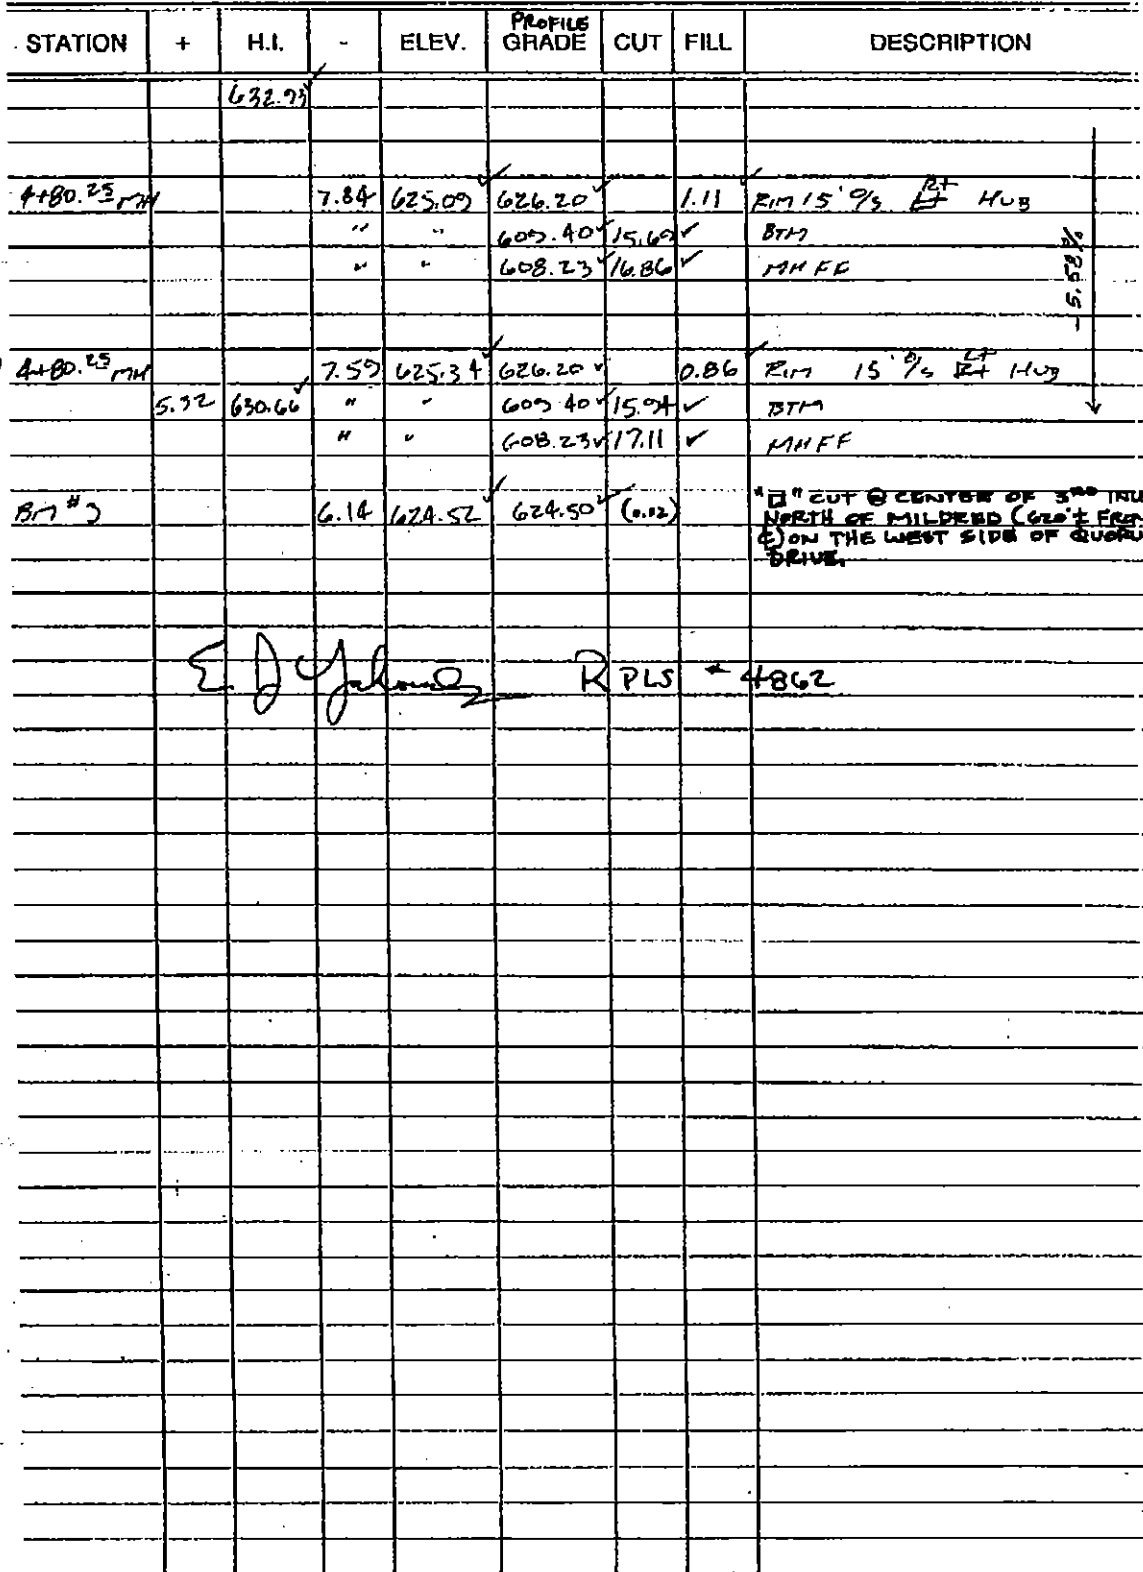 STATION + H.I. - ELEV. PROFILE GRADE CUT FILL DESCRIPTION
632.93
4+80.25 MH 7.84 625.09 626.20 1.11 Rim 15' O/S Rt Hub
" " 609.40 15.69 BTM
" " 608.23 16.86 MH FF
-5.58%
4+80.25 MH 7.59 625.34 626.20 0.86 Rim 15' O/S Lt Hub
5.32 630.66 " " 609.40 15.94 BTM
" " 608.23 17.11 MH FF
BM # 6.14 624.52 624.50 (0.02) "□" CUT @ CENTER OF 3RD INL
NORTH OF MILDRED (620'± FROM
℄) ON THE WEST SIDE OF QUORU
DRIVE.
E. D. RPLS # 4862